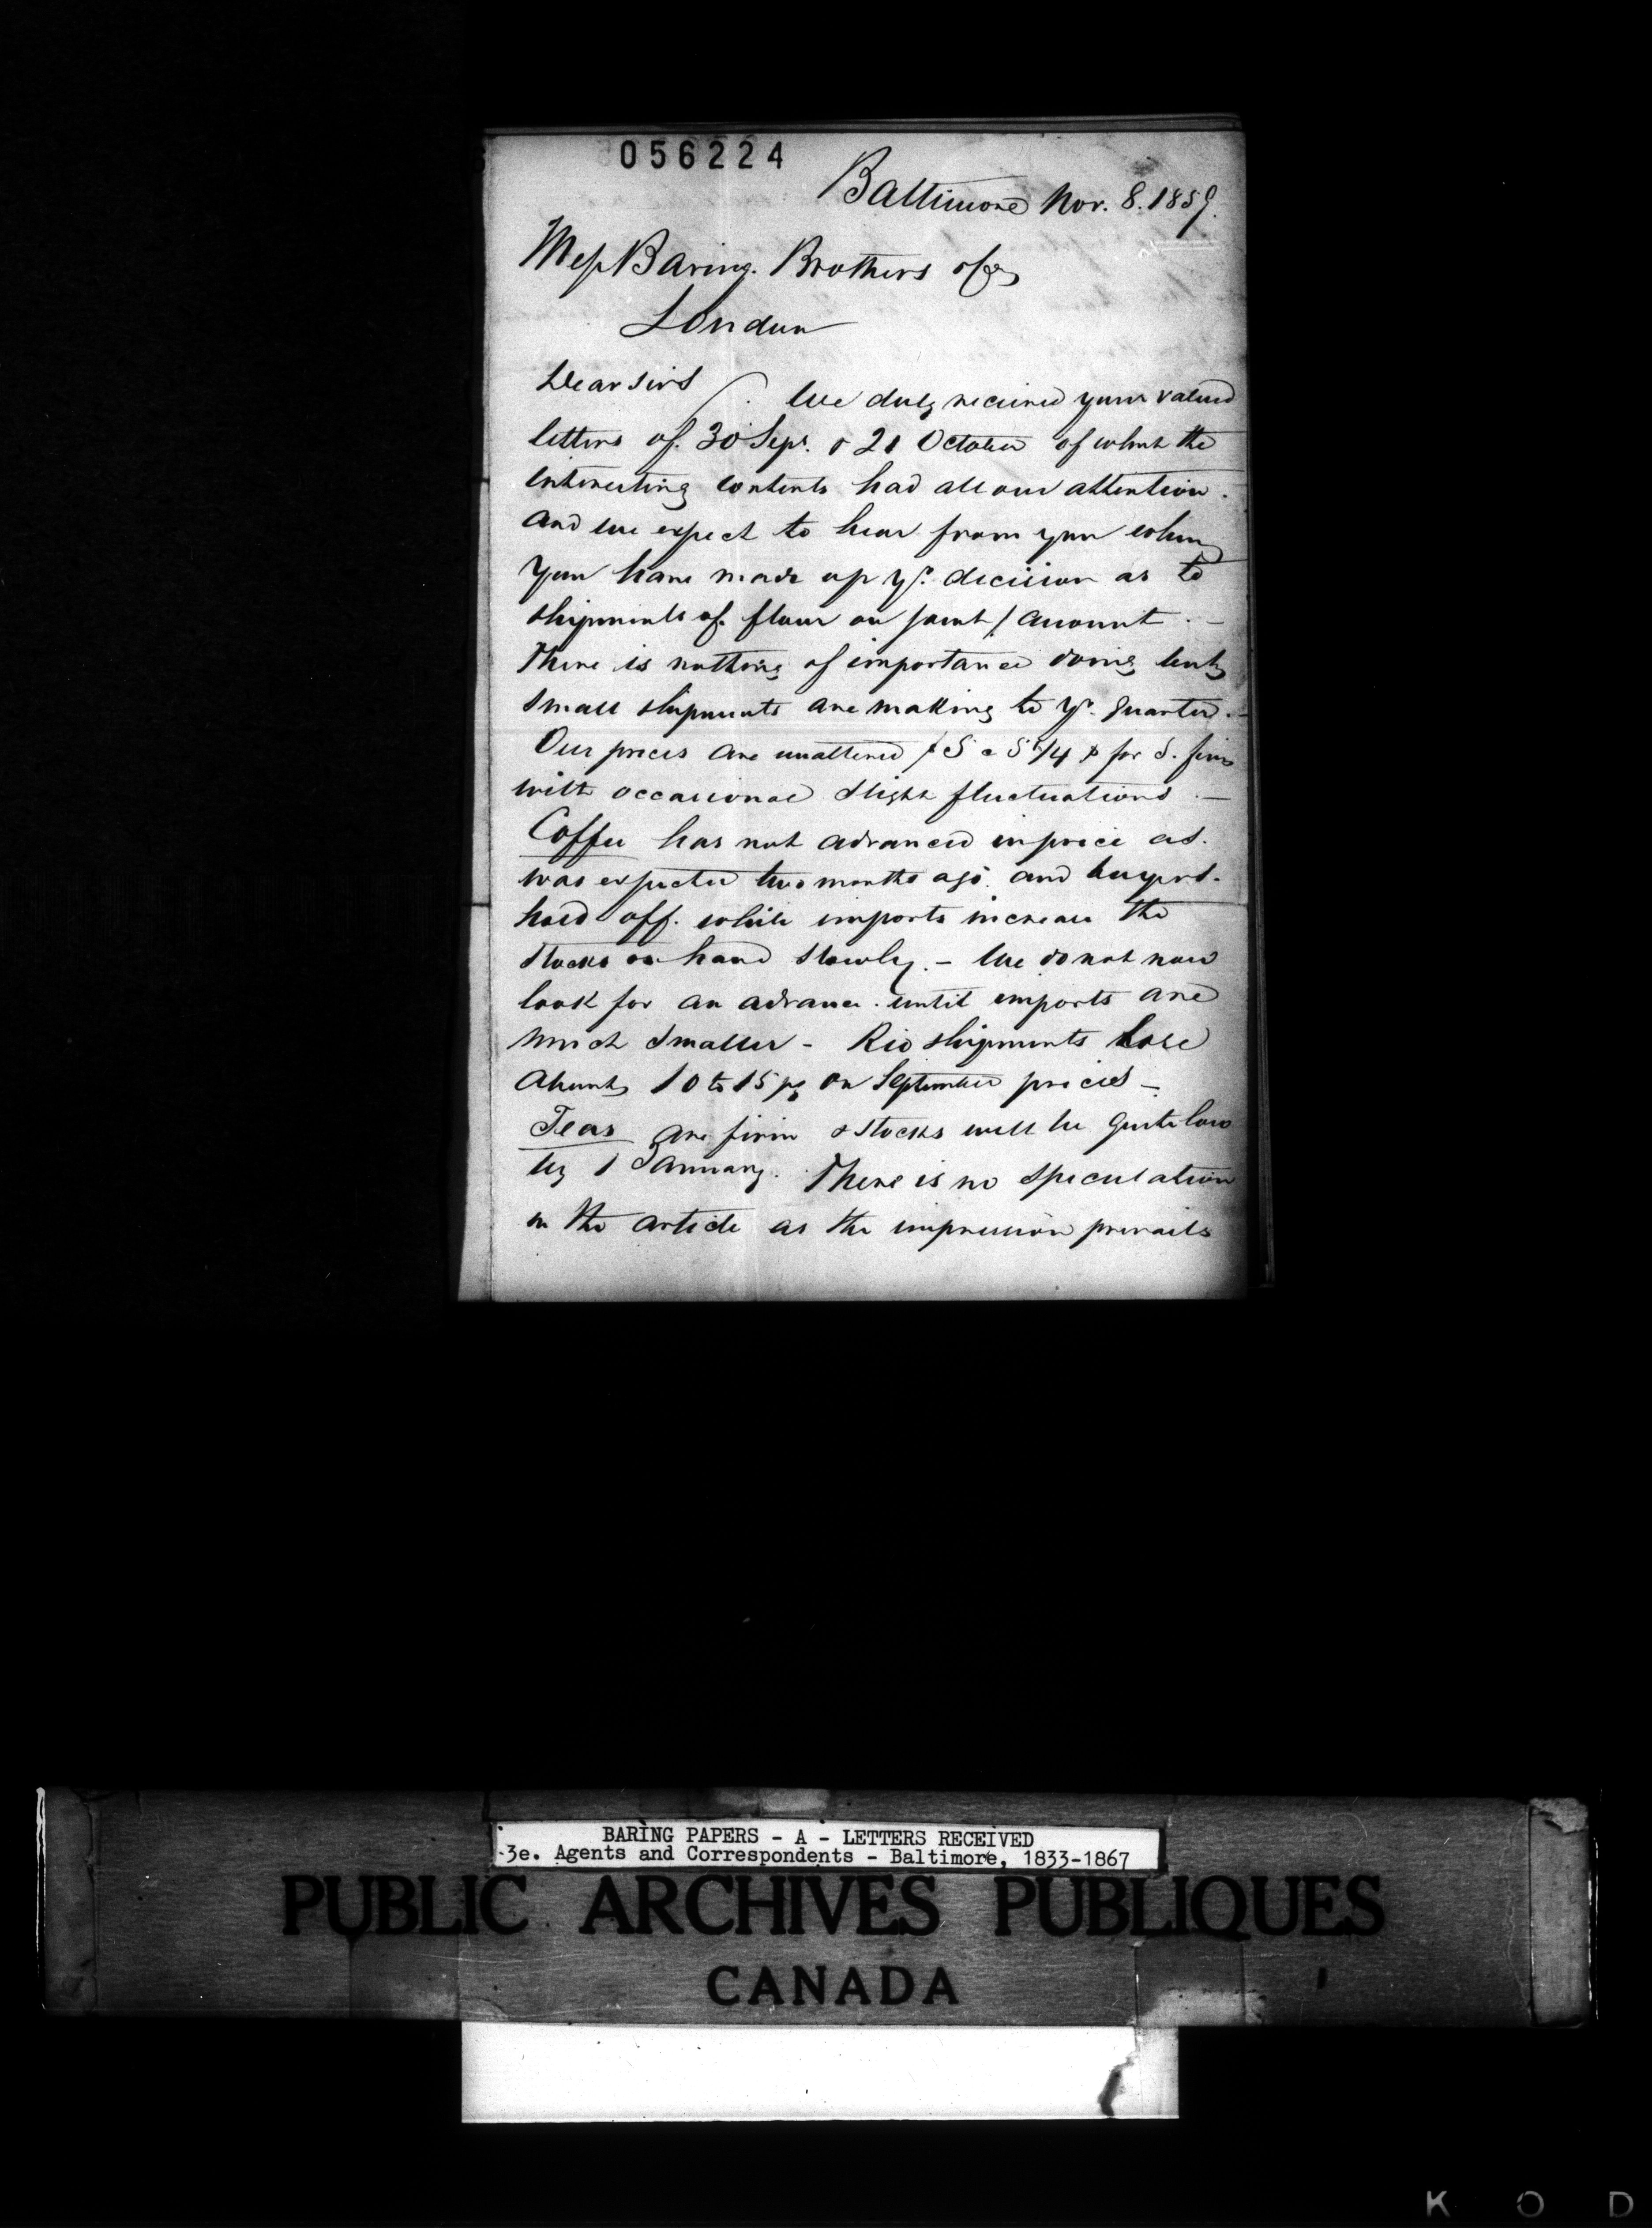 056224
Baltimore Nov. 8. 1859.
Mess Baring Brothers & Co
London
Dear Sirs
We duly received your valued
letters of 30 Sepr. & 21 October of which the
interesting contents had all our attention.
and we expect to hear from you when
you have made up yr. decision as to
shipments of flour on joint / account. —
There is nothing of importance doing but
small shipments are making to yr. quarter. —
Our prices are unaltered $ 5 a 5 1/4 $ for S. fine
with occasional slight fluctuations. —
Coffee has not advanced in price as.
was expected two months ago. and buyers.
hold off. while imports increase the
stocks on hand slowly. — We do not now
look for an advance. until imports are
much smaller - Rio shipments lose
about 10 to 15 pc on September prices —
Teas are firm & stocks will be quite low
by 1 January. There is no speculation
in the article as the impression prevails
BARING PAPERS - A - LETTERS RECEIVED
3e. Agents and Correspondents - Baltimore, 1833-1867
PUBLIC ARCHIVES PUBLIQUES
CANADA
K O D